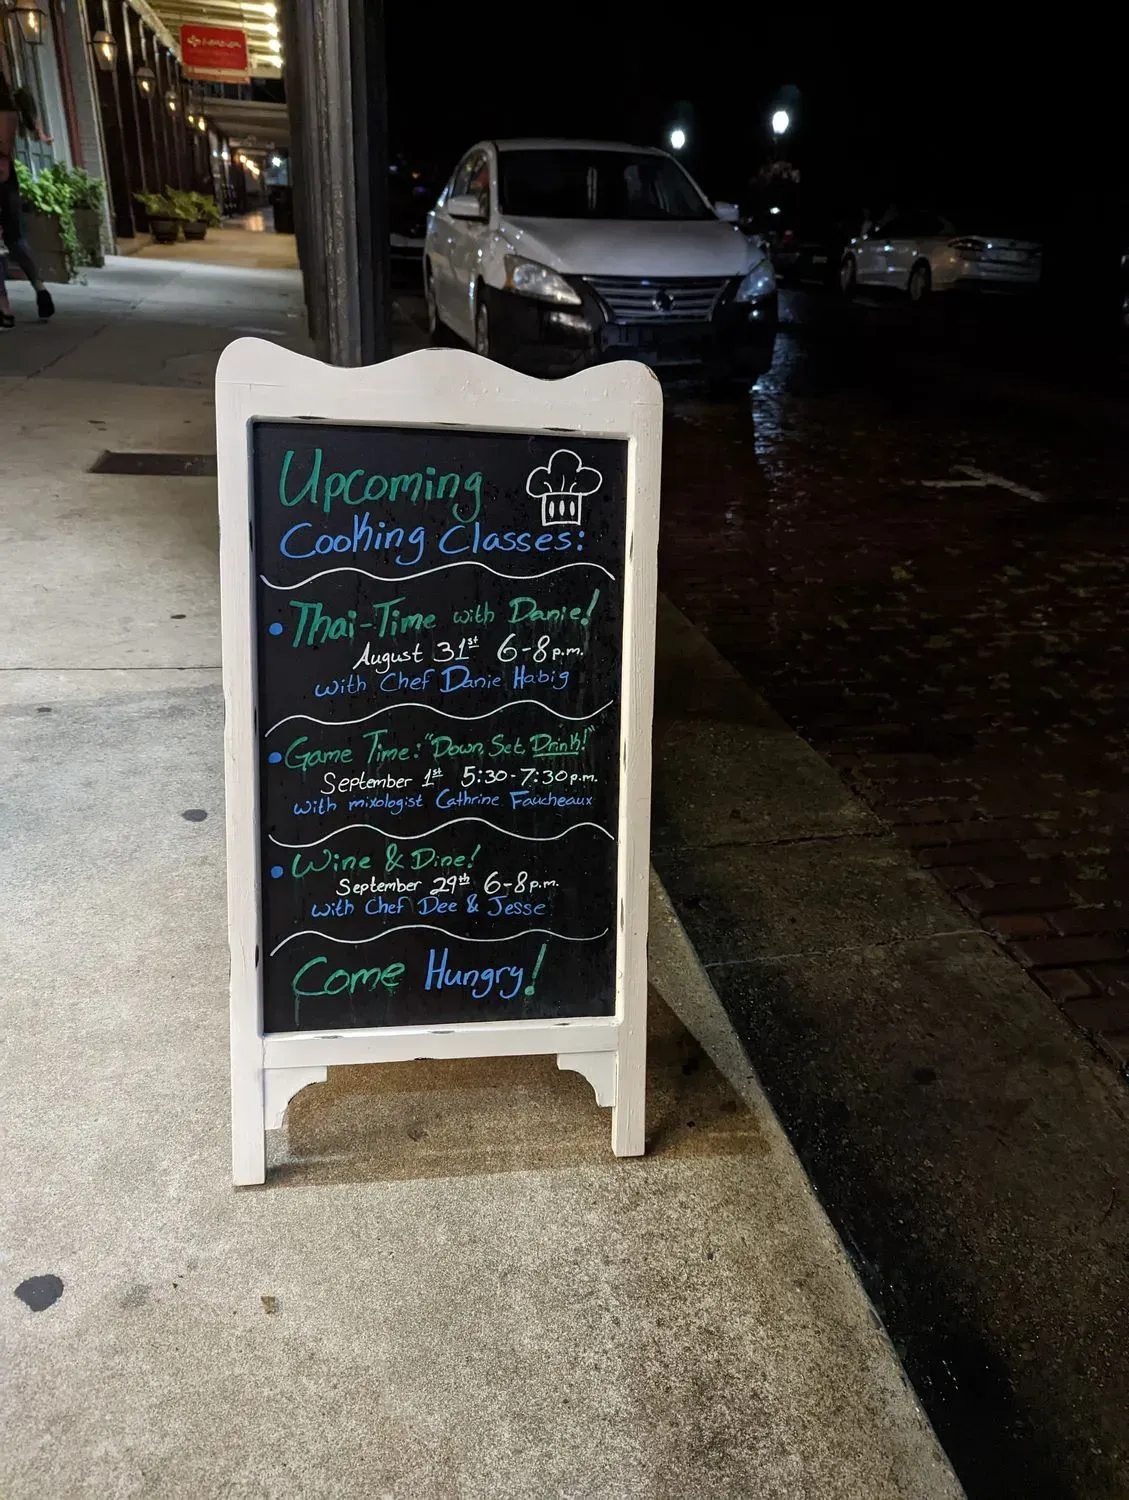 Upcoming
Cooking Classes:
• Thai-Time with Danie!
August 31st 6-8p.m.
with Chef Danie Habig
• Game Time: "Down, Set, Drink!"
September 1st 5:30-7:30p.m.
with mixologist Cathrine Faucheaux
• Wine & Dine!
September 29th 6-8p.m.
with Chef Dee & Jesse
Come Hungry!